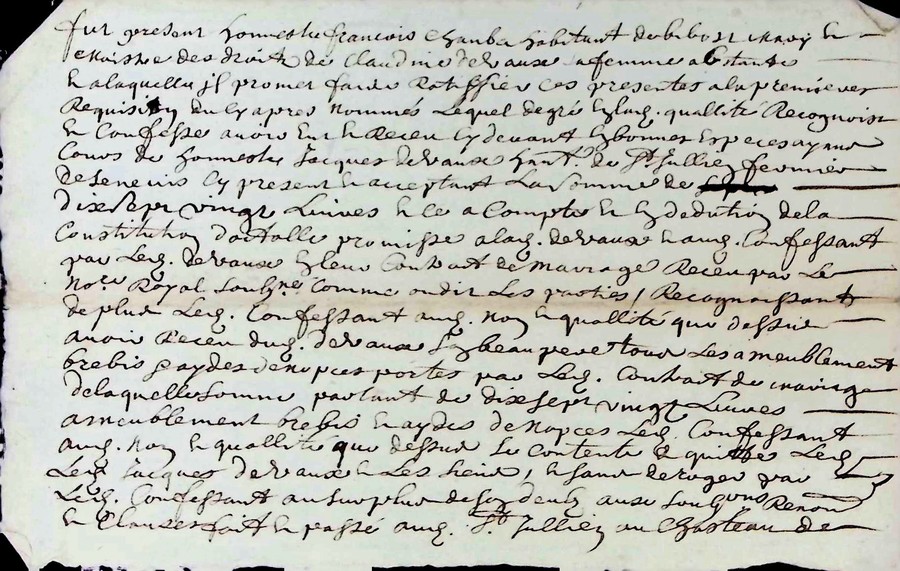 fut present honneste francois Chamba habitant de bibost mary &
Maistre des droits de Claudine devaux sa femme abstante
& a laquelle jl promet faire Ratiffier ces presentes a la premiere
Requisi[ti]on du cy apres nommés Lequel de gré esd. quallité Recognoist
& Confesse avoir Eu & Receu cy devant En bonnes Especes ayant
Cours de honneste Jacques devaux hant. de St Jullien fermier
de Senevis cy present & acceptant La somme de
dix sept vingt Livres & ce a Compte & En dedution de la
Constitution dotalle promisse a lad. devaux & aud. Confessant
par Led. devaux En leur Contrait de Mariage Receu par Le
Nore. Royal soubzne. Comme ont dit Les parties / Recognoissant
de plus Led. Confessant aud. Nom & quallité que dessus
avoir Receu dud. devaux son beau pere tous Les ameublement
brebis & aydes de nopces portes par Led. Contrait de mariage
de laquelle somme partant de dix sept vingt Livres
ameublement brebis & aydes de Nopces Led. Confessant
aud. Nom & quallité que dessus se Contente & quitte Led.
Led. Jacques devaux & Les siens / & sans deroger par
Led. Confessant au surplus de son deub aux soubzons Renon
& Clauses fait & passé aud. St Jullien au Chasteau de